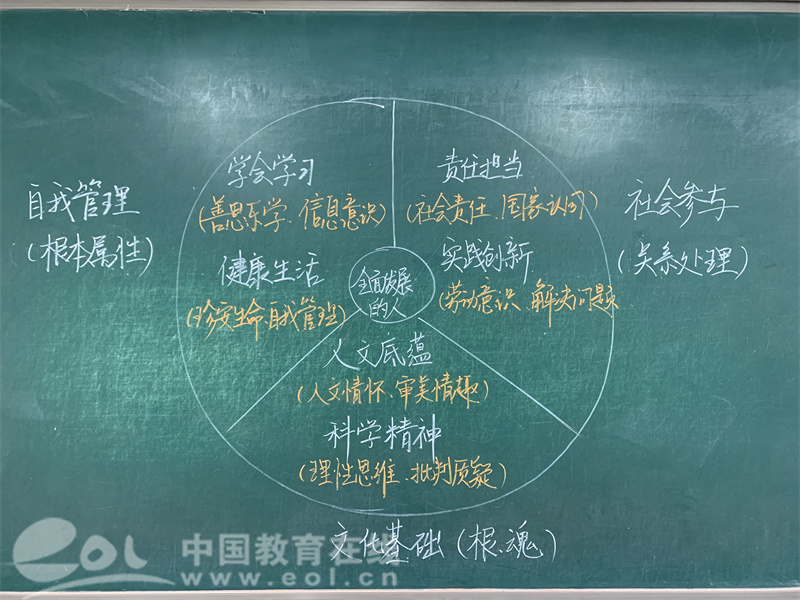 学会学习
(善思乐学、信息意识)
健康生活
(珍爱生命 自我管理)
责任担当
(社会责任、国家认同)
实践创新
(劳动意识 解决问题
自我管理
(根本属性)
社会参与
(关系处理)
全面发展
的人
人文底蕴
(人文情怀、审美情趣)
科学精神
(理性思维、批判质疑)
文化基础(根、魂)
eol 中国教育在线
www.eol.cn